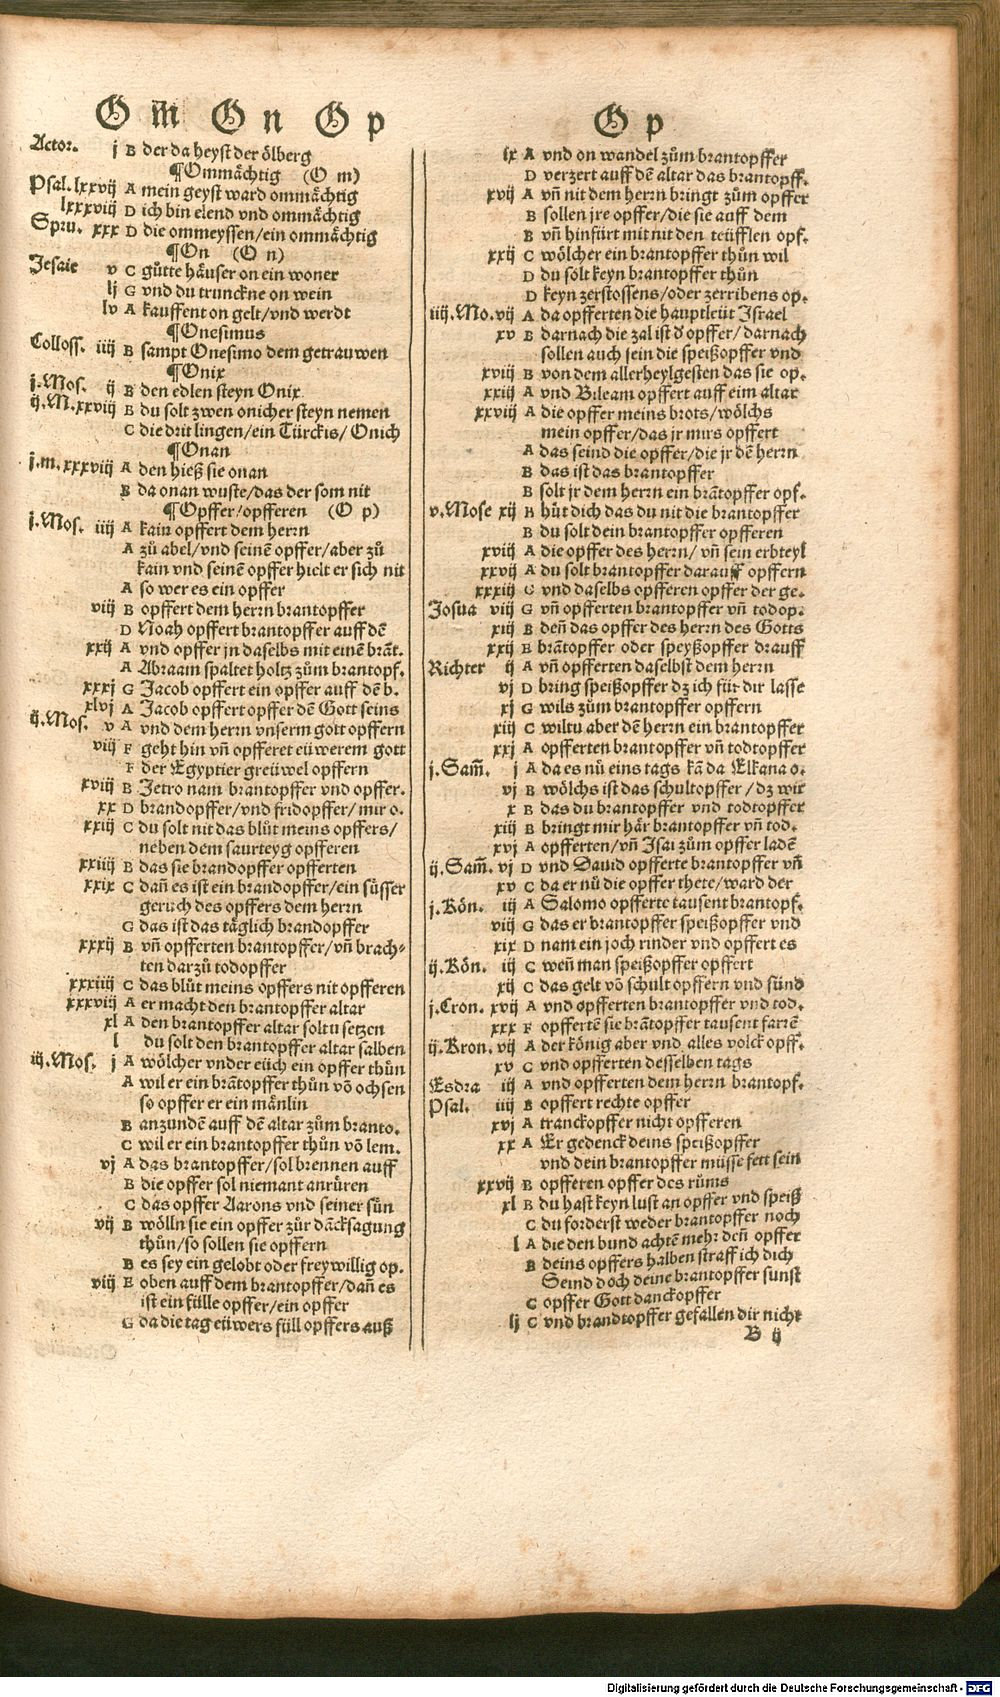 Om On Op
Actor. j B der da heyst der ölberg
¶Ommächtig (O m)
Psal. lxxvij A mein geyst ward ommächtig
lxxxviij D ich bin elend vnd ommächtig
Spru. xxx D die ommeyssen/ein ommächtig
¶On (O n)
Jesaie v C gůtte häuser on ein woner
lj G vnd du trunckne on wein
lv A kauffent on gelt/vnd werdt
¶Onesimus
Colloss. iiij B sampt Onesimo dem getrauwen
¶Onix
j.Mos. ij B den edlen steyn Onix
ij.M.xxviij B du solt zwen onicher steyn nemen
C die drit lingen/ein Türckis/Onich
¶Onan
j.m.xxxviij A den hieß sie onan
B da onan wuste/das der som nit
¶Opffer/opfferen (O p)
j.Mos. iiij A kain opffert dem herrn
A zů abel/vnd seinē opffer/aber zů
kain vnd seinē opffer hielt er sich nit
A so wer es ein opffer
viij B opffert dem herrn brantopffer
D Noah opffert brantopffer auff dē
xxij A vnd opffer jn daselbs mit einē brāt.
A Abraam spaltet holtz zům brantopf.
xxxj G Jacob opffert ein opffer auff dē b.
xlvj A Jacob opffert opffer dē Gott seins
ij.Mos. v A vnd dem herrn vnserm gott opffern
viij F geht hin vñ opfferet eüwerem gott
F der Egyptier greüwel opffern
xviij B Jetro nam brantopffer vnd opffer.
xx D brandopffer/vnd fridopffer/mir o.
xxiij C du solt nit das blůt meins opffers/
neben dem saurteyg opfferen
xxiiij B das sie brandopffer opfferten
xxix C dañ es ist ein brandopffer/ein süsser
geruch des opffers dem herrn
G das ist das täglich brandopffer
xxxij B vñ opfferten brantopffer/vñ brach-
ten darzů todopffer
xxxiiij C das blůt meins opffers nit opfferen
xxxviij A er macht den brantopffer altar
xl A den brantopffer altar soltu setzen
l du solt den brantopffer altar salben
iij.Mos. j A wölcher vnder eüch ein opffer thůn
A wil er ein brātopffer thůn vō ochsen
so opffer er ein mänlin
B anzundē auff dē altar zům branto.
C wil er ein brantopffer thůn vō lem.
vj A das brantopffer/sol brennen auff
B die opffer sol niemant anrůren
C das opffer Aarons vnd seiner sün
vij B wölln sie ein opffer zůr dācksagung
thůn/so sollen sie opffern
B es sey ein gelobt oder freywillig op.
viij E oben auff dem brantopffer/dañ es
ist ein fülle opffer/ein opffer
G da die tag eüwers füll opffers auß
Op
ix A vnd on wandel zům brantopffer
D verzert auff dē altar das brantopff.
xvij A vñ nit dem herrn bringt zům opffer
B sollen jre opffer/die sie auff dem
B vñ hinfürt mit nit den teüfflen opf.
xxij C wölcher ein brantopffer thůn wil
D du solt keyn brantopffer thůn
D keyn zerstossens/oder zerribens op.
iiij.Mo.vij A da opfferten die hauptleüt Israel
xv B darnach die zal ist d' opffer/darnach
sollen auch sein die speißopffer vnd
xviij B von dem allerheylgesten das sie op.
xxiij A vnd Bileam opffert auff eim altar
xxviij A die opffer meins brots/wölchs
mein opffer/das jr mirs opffert
A das seind die opffer/die jr dē herrn
B das ist das brantopffer
B solt jr dem herrn ein brātopffer opf.
v.Mose xij B hůt dich das du nit die brantopffer
B du solt dein brantopffer opfferen
xviij A die opffer des herrn/vñ sein erbteyl
xxvij A du solt brantopffer darauff opffern
xxxiij G vnd daselbs opfferen opffer der ge.
Josua viij G vñ opfferten brantopffer vñ todop.
xiij B deñ das opffer des herrn des Gotts
xxij E brātopffer oder speyßopffer drauff
Richter ij A vñ opfferten daselbst dem herrn
vj D bring speißopffer dz ich für dir lasse
xj G wils zům brantopffer opffern
xiij C wiltu aber dē herrn ein brantopffer
xxj A opfferten brantopffer vñ todtopffer
j.Sam̄. j A da es nů eins tags kā da Elkana o.
vj B wölchs ist das schultopffer/dz wir
x B das du brantopffer vnd todtopffer
xiij B bringt mir här brantopffer vñ tod.
xvj A opfferten/vñ Isai zům opffer ladē
ij.Sam̄. vj D vnd Dauid opfferte brantopffer vñ
xv C da er nů die opffer thete/ward der
j.Kön. iij A Salomo opfferte tausent brantopf.
viij G das er brantopffer speißopffer vnd
xix D nam ein joch rinder vnd opffert es
ij.Kön. iij C weñ man speißopffer opffert
xij C das gelt vō schult opffern vnd sünd
j.Cron. xvij A vnd opfferten brantopffer vnd tod.
xxx F opffertē sie brātopffer tausent farrē
ij.Kron. vij A der könig aber vnd alles volck opff.
xv C vnd opfferten desselben tags
Esdra iij A vnd opfferten dem herrn brantopf.
Psal. iiij B opffert rechte opffer
xvj A tranckopffer nicht opfferen
xx A Er gedenck deins speißopffer
vnd dein brantopffer müsse fett sein
xxvij B opfferen opffer des růms
xl B du hast keyn lust an opffer vnd speiß
C du forderst weder brantopffer noch
l A die den bund achtē mehr deñ opffer
B deins opffers halben straff ich dich
Seind doch deine brantopffer sunst
C opffer Gott danckopffer
lj C vnd brandtopffer gefallen dir nicht
B ij
Digitalisierung gefördert durch die Deutsche Forschungsgemeinschaft - DFG